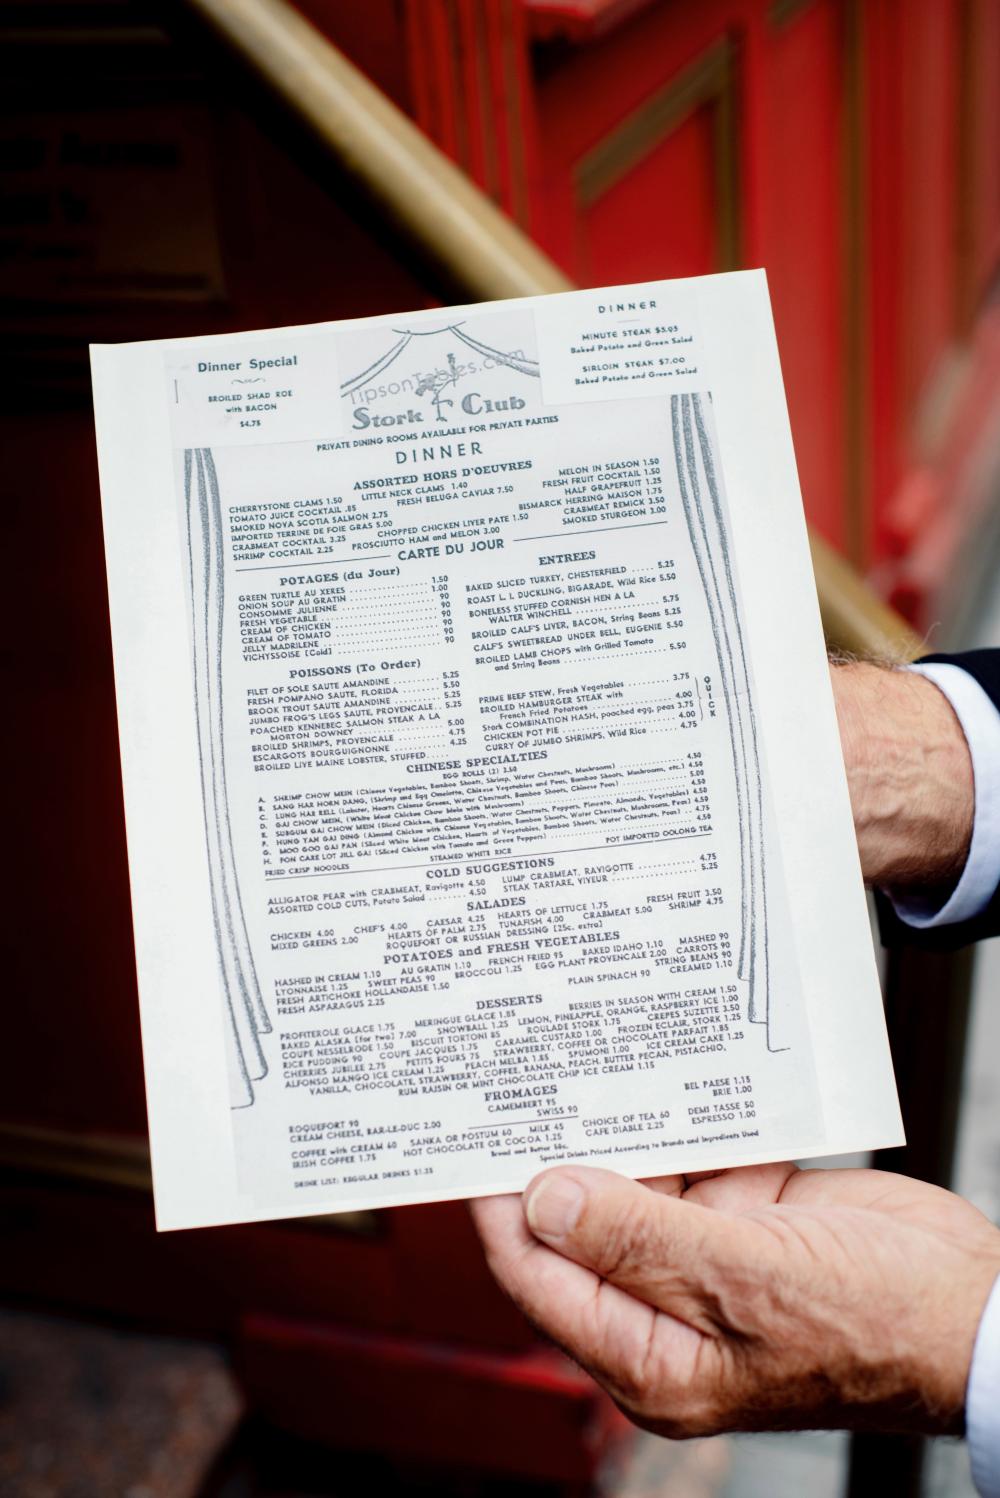 Dinner Special
BROILED SHAD ROE
with BACON
$4.75
TipsonTables.com
Stork Club
DINNER
MINUTE STEAK $5.95
Baked Potato and Green Salad
SIRLOIN STEAK $7.00
Baked Potato and Green Salad
PRIVATE DINING ROOMS AVAILABLE FOR PRIVATE PARTIES
DINNER
ASSORTED HORS D'OEUVRES
CHERRYSTONE CLAMS 1.50 LITTLE NECK CLAMS 1.40 MELON IN SEASON 1.50
TOMATO JUICE COCKTAIL .85 FRESH BELUGA CAVIAR 7.50 FRESH FRUIT COCKTAIL 1.50
SMOKED NOVA SCOTIA SALMON 2.75 HALF GRAPEFRUIT 1.25
IMPORTED TERRINE DE FOIE GRAS 5.00 BISMARCK HERRING MAISON 1.75
CRABMEAT COCKTAIL 3.25 CHOPPED CHICKEN LIVER PATE 1.50 CRABMEAT REMICK 3.50
SHRIMP COCKTAIL 2.25 PROSCIUTTO HAM and MELON 3.00 SMOKED STURGEON 3.00
CARTE DU JOUR
POTAGES (du Jour)
GREEN TURTLE AU XERES 1.50
ONION SOUP AU GRATIN 1.00
CONSOMME JULIENNE 90
FRESH VEGETABLE 90
CREAM OF CHICKEN 90
CREAM OF TOMATO 90
JELLY MADRILENE 90
VICHYSSOISE [Cold] 90
POISSONS (To Order)
FILET OF SOLE SAUTE AMANDINE 5.25
FRESH POMPANO SAUTE, FLORIDA 5.50
BROOK TROUT SAUTE AMANDINE 5.25
JUMBO FROG'S LEGS SAUTE, PROVENCALE 5.25
POACHED KENNEBEC SALMON STEAK A LA
MORTON DOWNEY 5.00
BROILED SHRIMPS, PROVENCALE 4.75
ESCARGOTS BOURGUIGNONNE 4.25
BROILED LIVE MAINE LOBSTER, STUFFED
ENTREES
BAKED SLICED TURKEY, CHESTERFIELD 5.25
ROAST L. I. DUCKLING, BIGARADE, Wild Rice 5.50
BONELESS STUFFED CORNISH HEN A LA
WALTER WINCHELL 5.75
BROILED CALF'S LIVER, BACON, String Beans 5.25
CALF'S SWEETBREAD UNDER BELL, EUGENIE 5.50
BROILED LAMB CHOPS with Grilled Tomato
and String Beans 5.50
PRIME BEEF STEW, Fresh Vegetables 3.75
BROILED HAMBURGER STEAK with
French Fried Potatoes 4.00
Stork COMBINATION HASH, poached egg, peas 3.75
CHICKEN POT PIE 4.00
CURRY OF JUMBO SHRIMPS, Wild Rice 4.75
QUICK
CHINESE SPECIALTIES
EGG ROLLS (2) 2.50
A. SHRIMP CHOW MEIN (Chinese Vegetables, Bamboo Shoots, Shrimp, Water Chestnuts, Mushrooms) 4.50
B. SANG HAR HORN DANG, (Shrimp and Egg Omelette, Chinese Vegetables and Peas, Bamboo Shoots, Mushrooms, etc.) 4.50
C. LUNG HAR KELL (Lobster, Hearts Chinese Greens, Water Chestnuts, Bamboo Shoots, Chinese Peas) 5.00
D. GAI CHOW MEIN, (White Meat Chicken Chow Mein with Mushrooms) 4.50
E. SUBGUM GAI CHOW MEIN (Diced Chicken, Bamboo Shoots, Water Chestnuts, Peppers, Pimento, Almonds, Vegetables) 4.50
F. HUNG YAN GAI DING (Almond Chicken with Chinese Vegetables, Bamboo Shoots, Water Chestnuts, Mushrooms, Peas) 4.50
G. MOO GOO GAI PAN (Sliced White Meat Chicken, Hearts of Vegetables, Bamboo Shoots, Water Chestnuts) 4.75
H. FON CARE LOT JILL GAI (Sliced Chicken with Tomato and Green Peppers) 4.50
FRIED CRISP NOODLES STEAMED WHITE RICE POT IMPORTED OOLONG TEA
COLD SUGGESTIONS
ALLIGATOR PEAR with CRABMEAT, Ravigotte 4.50 LUMP CRABMEAT, RAVIGOTTE 4.75
ASSORTED COLD CUTS, Potato Salad 4.50 STEAK TARTARE, VIVEUR 5.25
SALADES
CHICKEN 4.00 CHEF'S 4.00 CAESAR 4.25 HEARTS OF LETTUCE 1.75 FRESH FRUIT 3.50
MIXED GREENS 2.00 HEARTS OF PALM 2.75 TUNAFISH 4.00 CRABMEAT 5.00 SHRIMP 4.75
ROQUEFORT OR RUSSIAN DRESSING [25c. extra]
POTATOES and FRESH VEGETABLES
HASHED IN CREAM 1.10 AU GRATIN 1.10 FRENCH FRIED 95 BAKED IDAHO 1.10 MASHED 90
LYONNAISE 1.25 SWEET PEAS 90 BROCCOLI 1.25 EGG PLANT PROVENCALE 2.00 CARROTS 90
FRESH ARTICHOKE HOLLANDAISE 1.50 STRING BEANS 90
FRESH ASPARAGUS 2.25 PLAIN SPINACH 90 CREAMED 1.10
DESSERTS
PROFITEROLE GLACE 1.75 MERINGUE GLACE 1.85 BERRIES IN SEASON WITH CREAM 1.50
BAKED ALASKA [for two] 7.00 SNOWBALL 1.25 LEMON, PINEAPPLE, ORANGE, RASPBERRY ICE 1.00
COUPE NESSELRODE 1.50 BISCUIT TORTONI 85 ROULADE STORK 1.75 CREPES SUZETTE 3.50
RICE PUDDING 90 COUPE JACQUES 1.75 CARAMEL CUSTARD 1.00 FROZEN ECLAIR, STORK 1.25
CHERRIES JUBILEE 2.75 PETITS FOURS 75 STRAWBERRY, COFFEE OR CHOCOLATE PARFAIT 1.85
ALFONSO MANGO ICE CREAM 1.25 PEACH MELBA 1.85 SPUMONI 1.00 ICE CREAM CAKE 1.25
VANILLA, CHOCOLATE, STRAWBERRY, COFFEE, BANANA, PEACH, BUTTER PECAN, PISTACHIO,
RUM RAISIN OR MINT CHOCOLATE CHIP ICE CREAM 1.15
FROMAGES
ROQUEFORT 90 CAMEMBERT 95 BEL PAESE 1.15
CREAM CHEESE, BAR-LE-DUC 2.00 SWISS 90 BRIE 1.00
COFFEE with CREAM 60 SANKA OR POSTUM 60 MILK 45 CHOICE OF TEA 60 DEMI TASSE 50
IRISH COFFEE 1.75 HOT CHOCOLATE OR COCOA 1.25 CAFE DIABLE 2.25 ESPRESSO 1.00
Bread and Butter 50c.
DRINK LIST: REGULAR DRINKS $1.25 Special Drinks Priced According to Brands and Ingredients Used